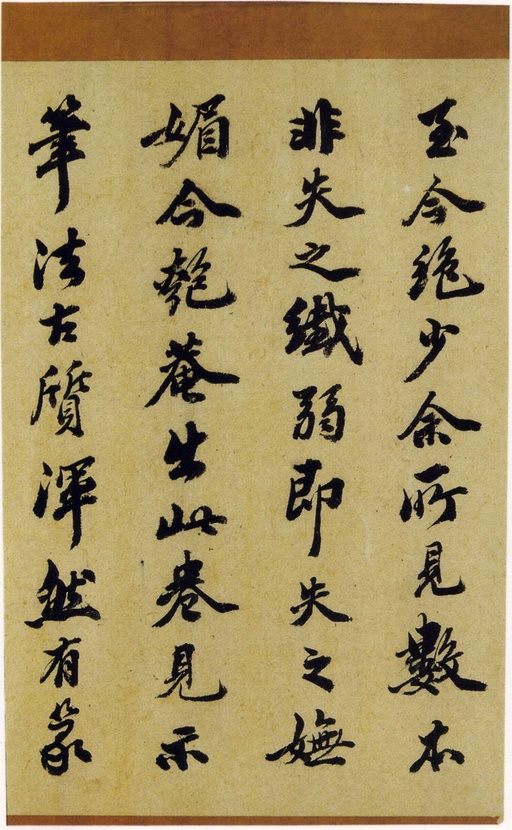 至今絶少余所見數本
非失之纖弱即失之嫵
媚今匏菴出此卷見示
筆法古質渾然有篆